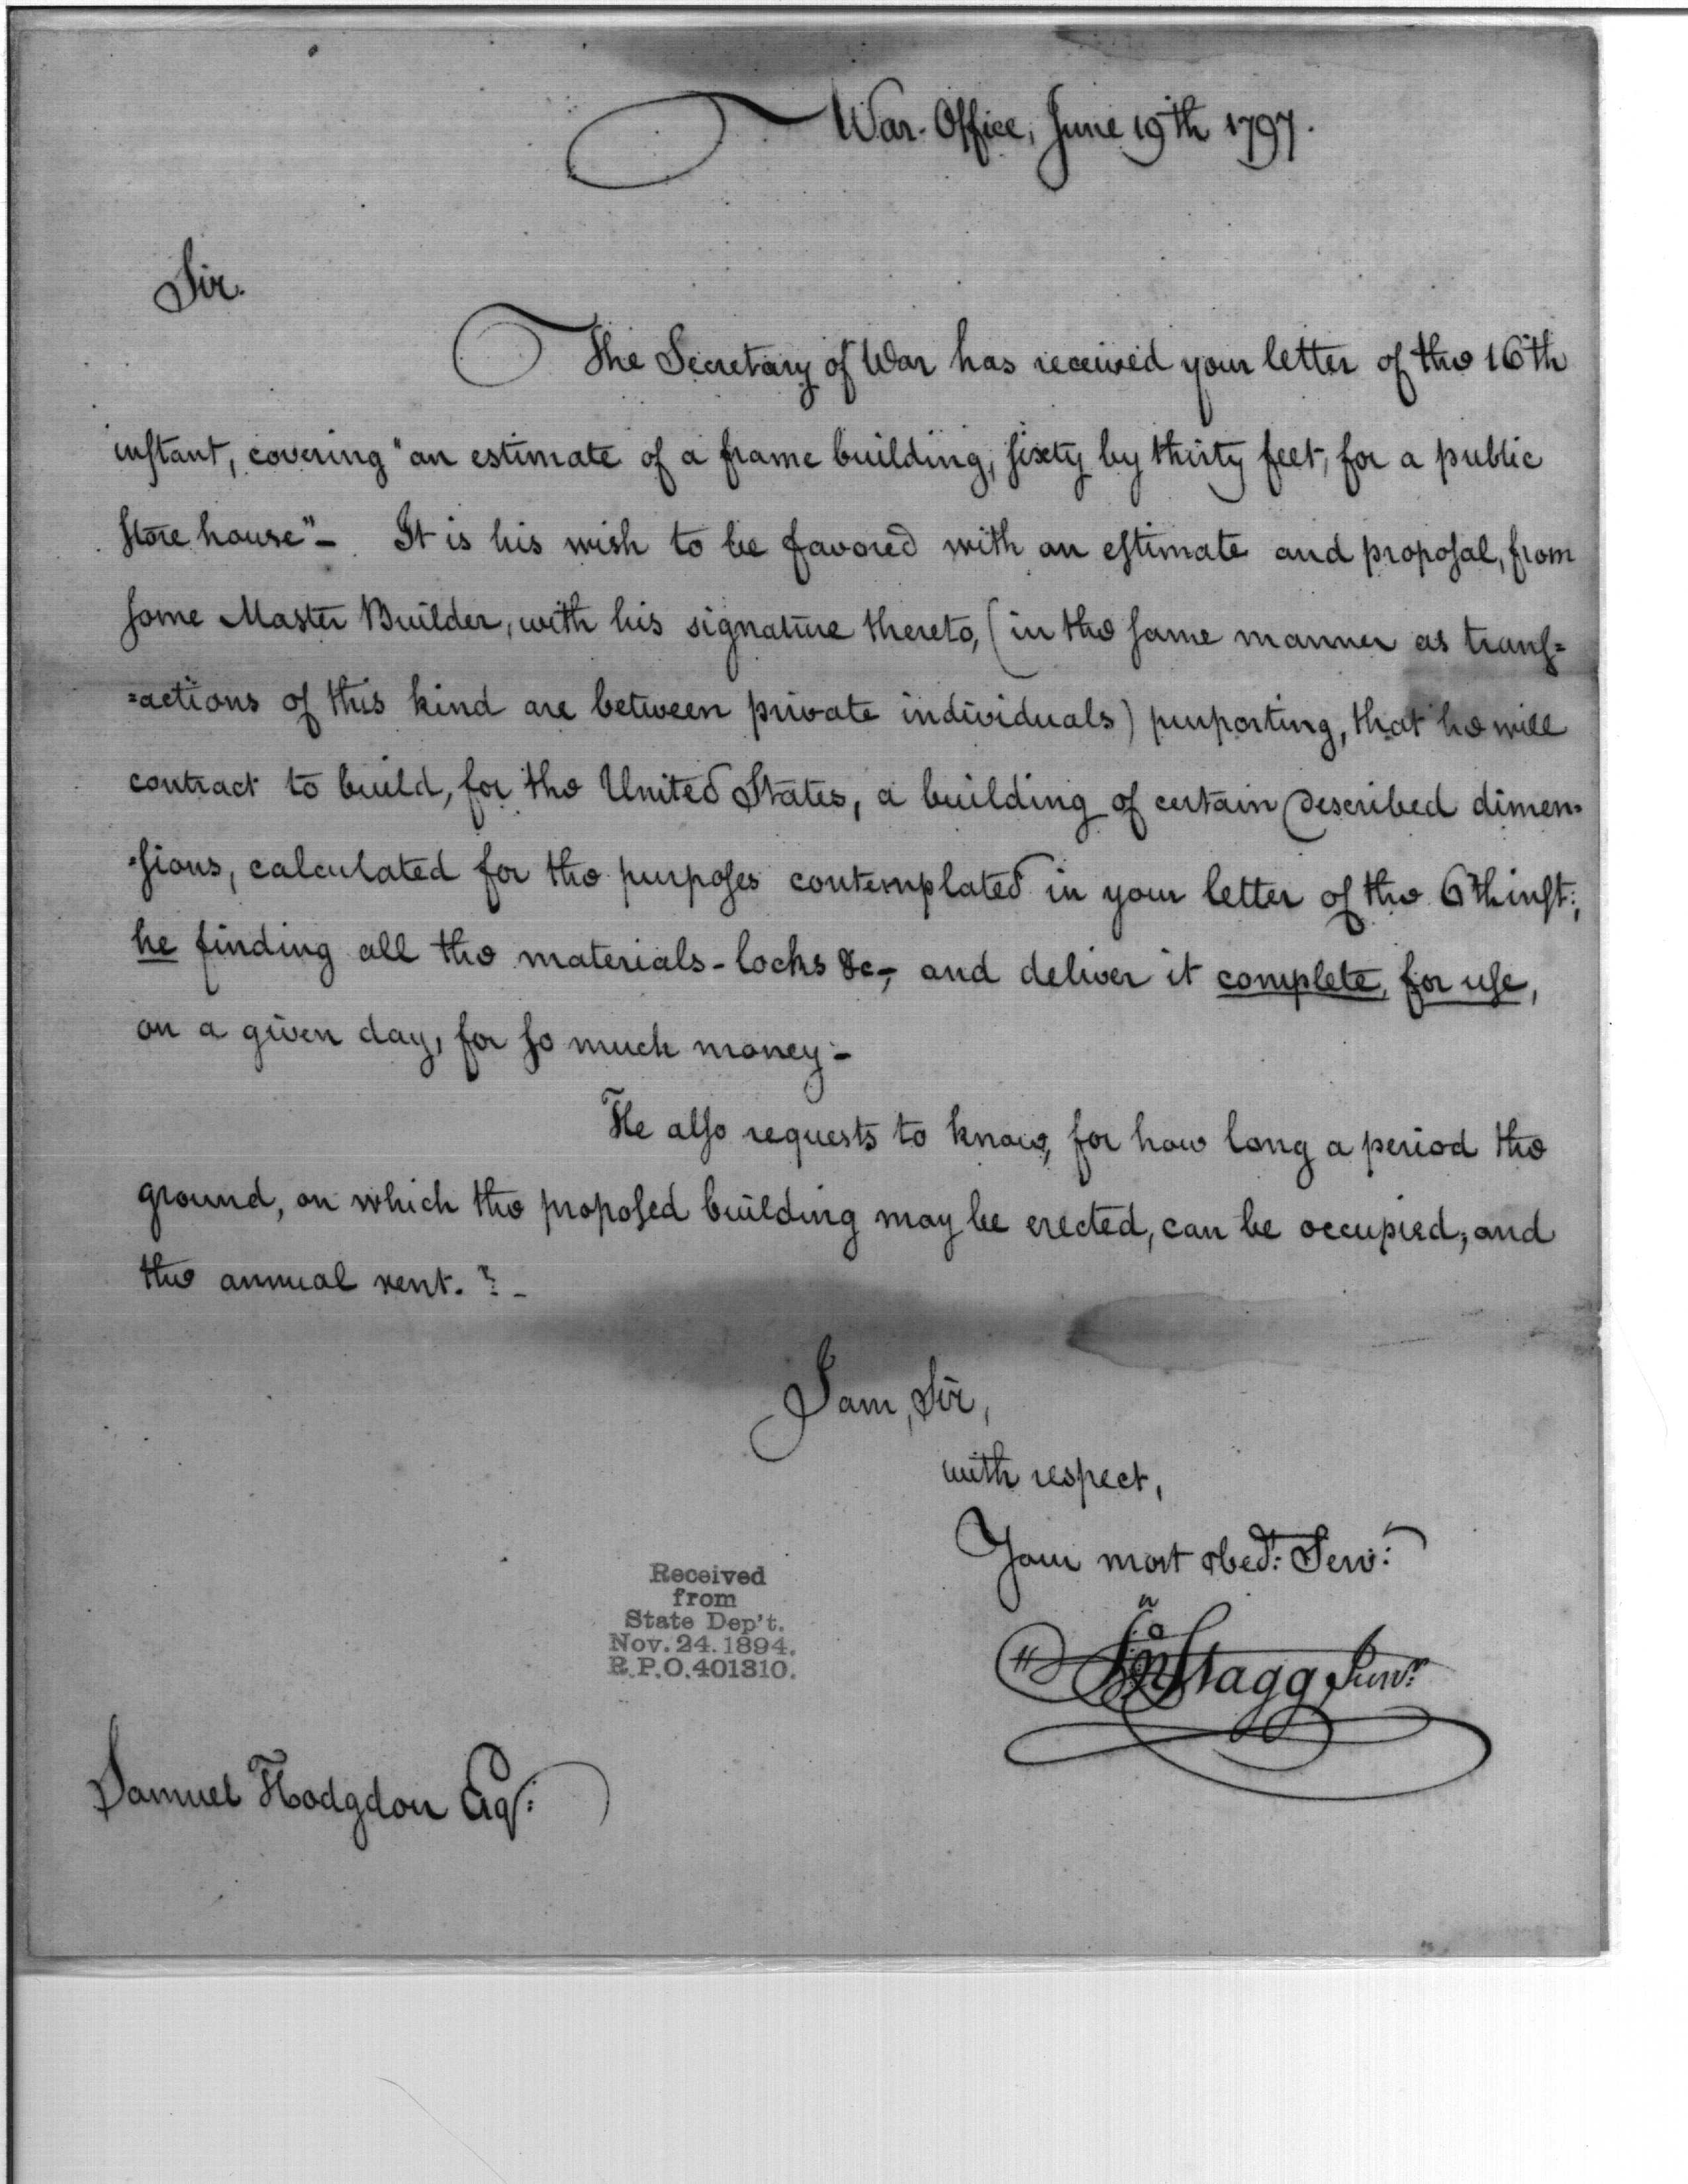 War-Office, June 19th 1797.
Sir.
The Secretary of War has received your letter of the 16th
instant, covering "an estimate of a frame building, sixty by thirty feet, for a public
store house"- It is his wish to be favored with an estimate and proposal, from
some Master Builder, with his signature thereto, (in the same manner as trans=
=actions of this kind are between private individuals) purporting, that he will
contract to build, for the United States, a building of certain described dimen=
=sions, calculated for the purposes contemplated in your letter of the 6th inst:,
he finding all the materials - locks &c-, and deliver it complete, for use,
on a given day, for so much money-
He also requests to know, for how long a period the
ground, on which the proposed building may be erected, can be occupied, and
the annual rent.?-
I am, Sir,
with respect,
Your most obed: Serv:
Jno Stagg Junr:
Received
from
State Dep't.
Nov. 24. 1894.
R.P.O. 401310.
Samuel Hodgdon Esqr: